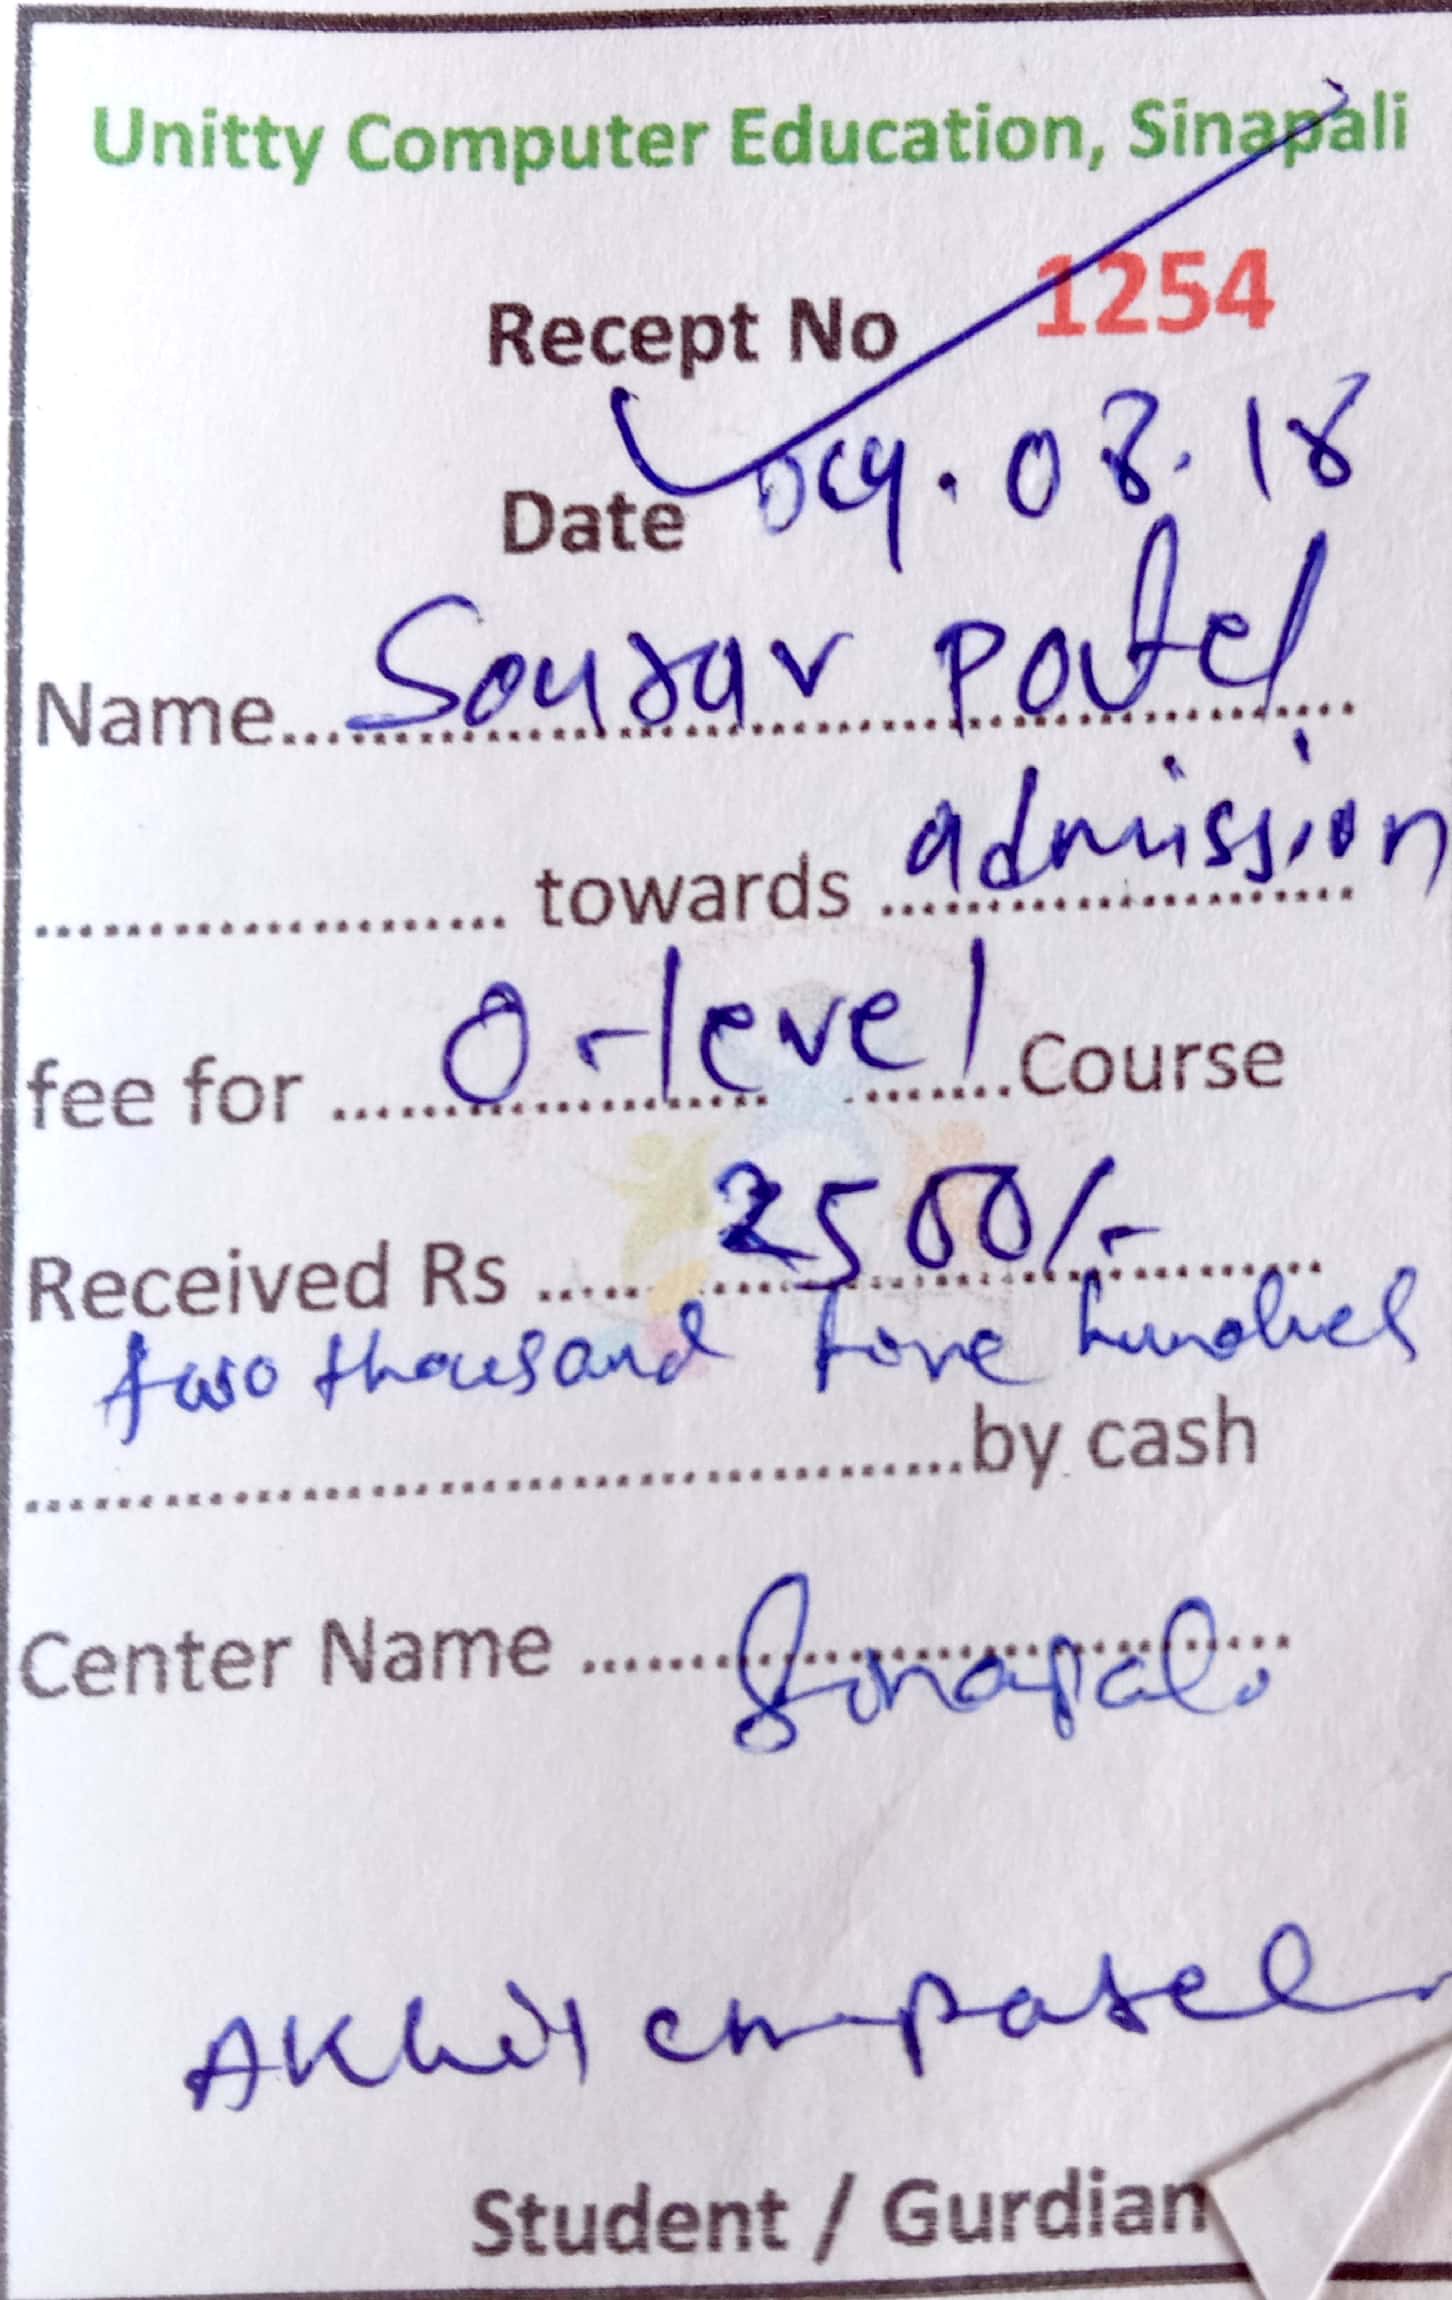 Unitty Computer Education, Sinapali
Recept No 1254
Date 04.08.18
Name....Sourav Patel
.................... towards admission
fee for ....O-level....Course
Received Rs ....2500/-
two thousand five hundred
....................by cash
Center Name ....Sinapali
Akhil ch patel
Student / Gurdian